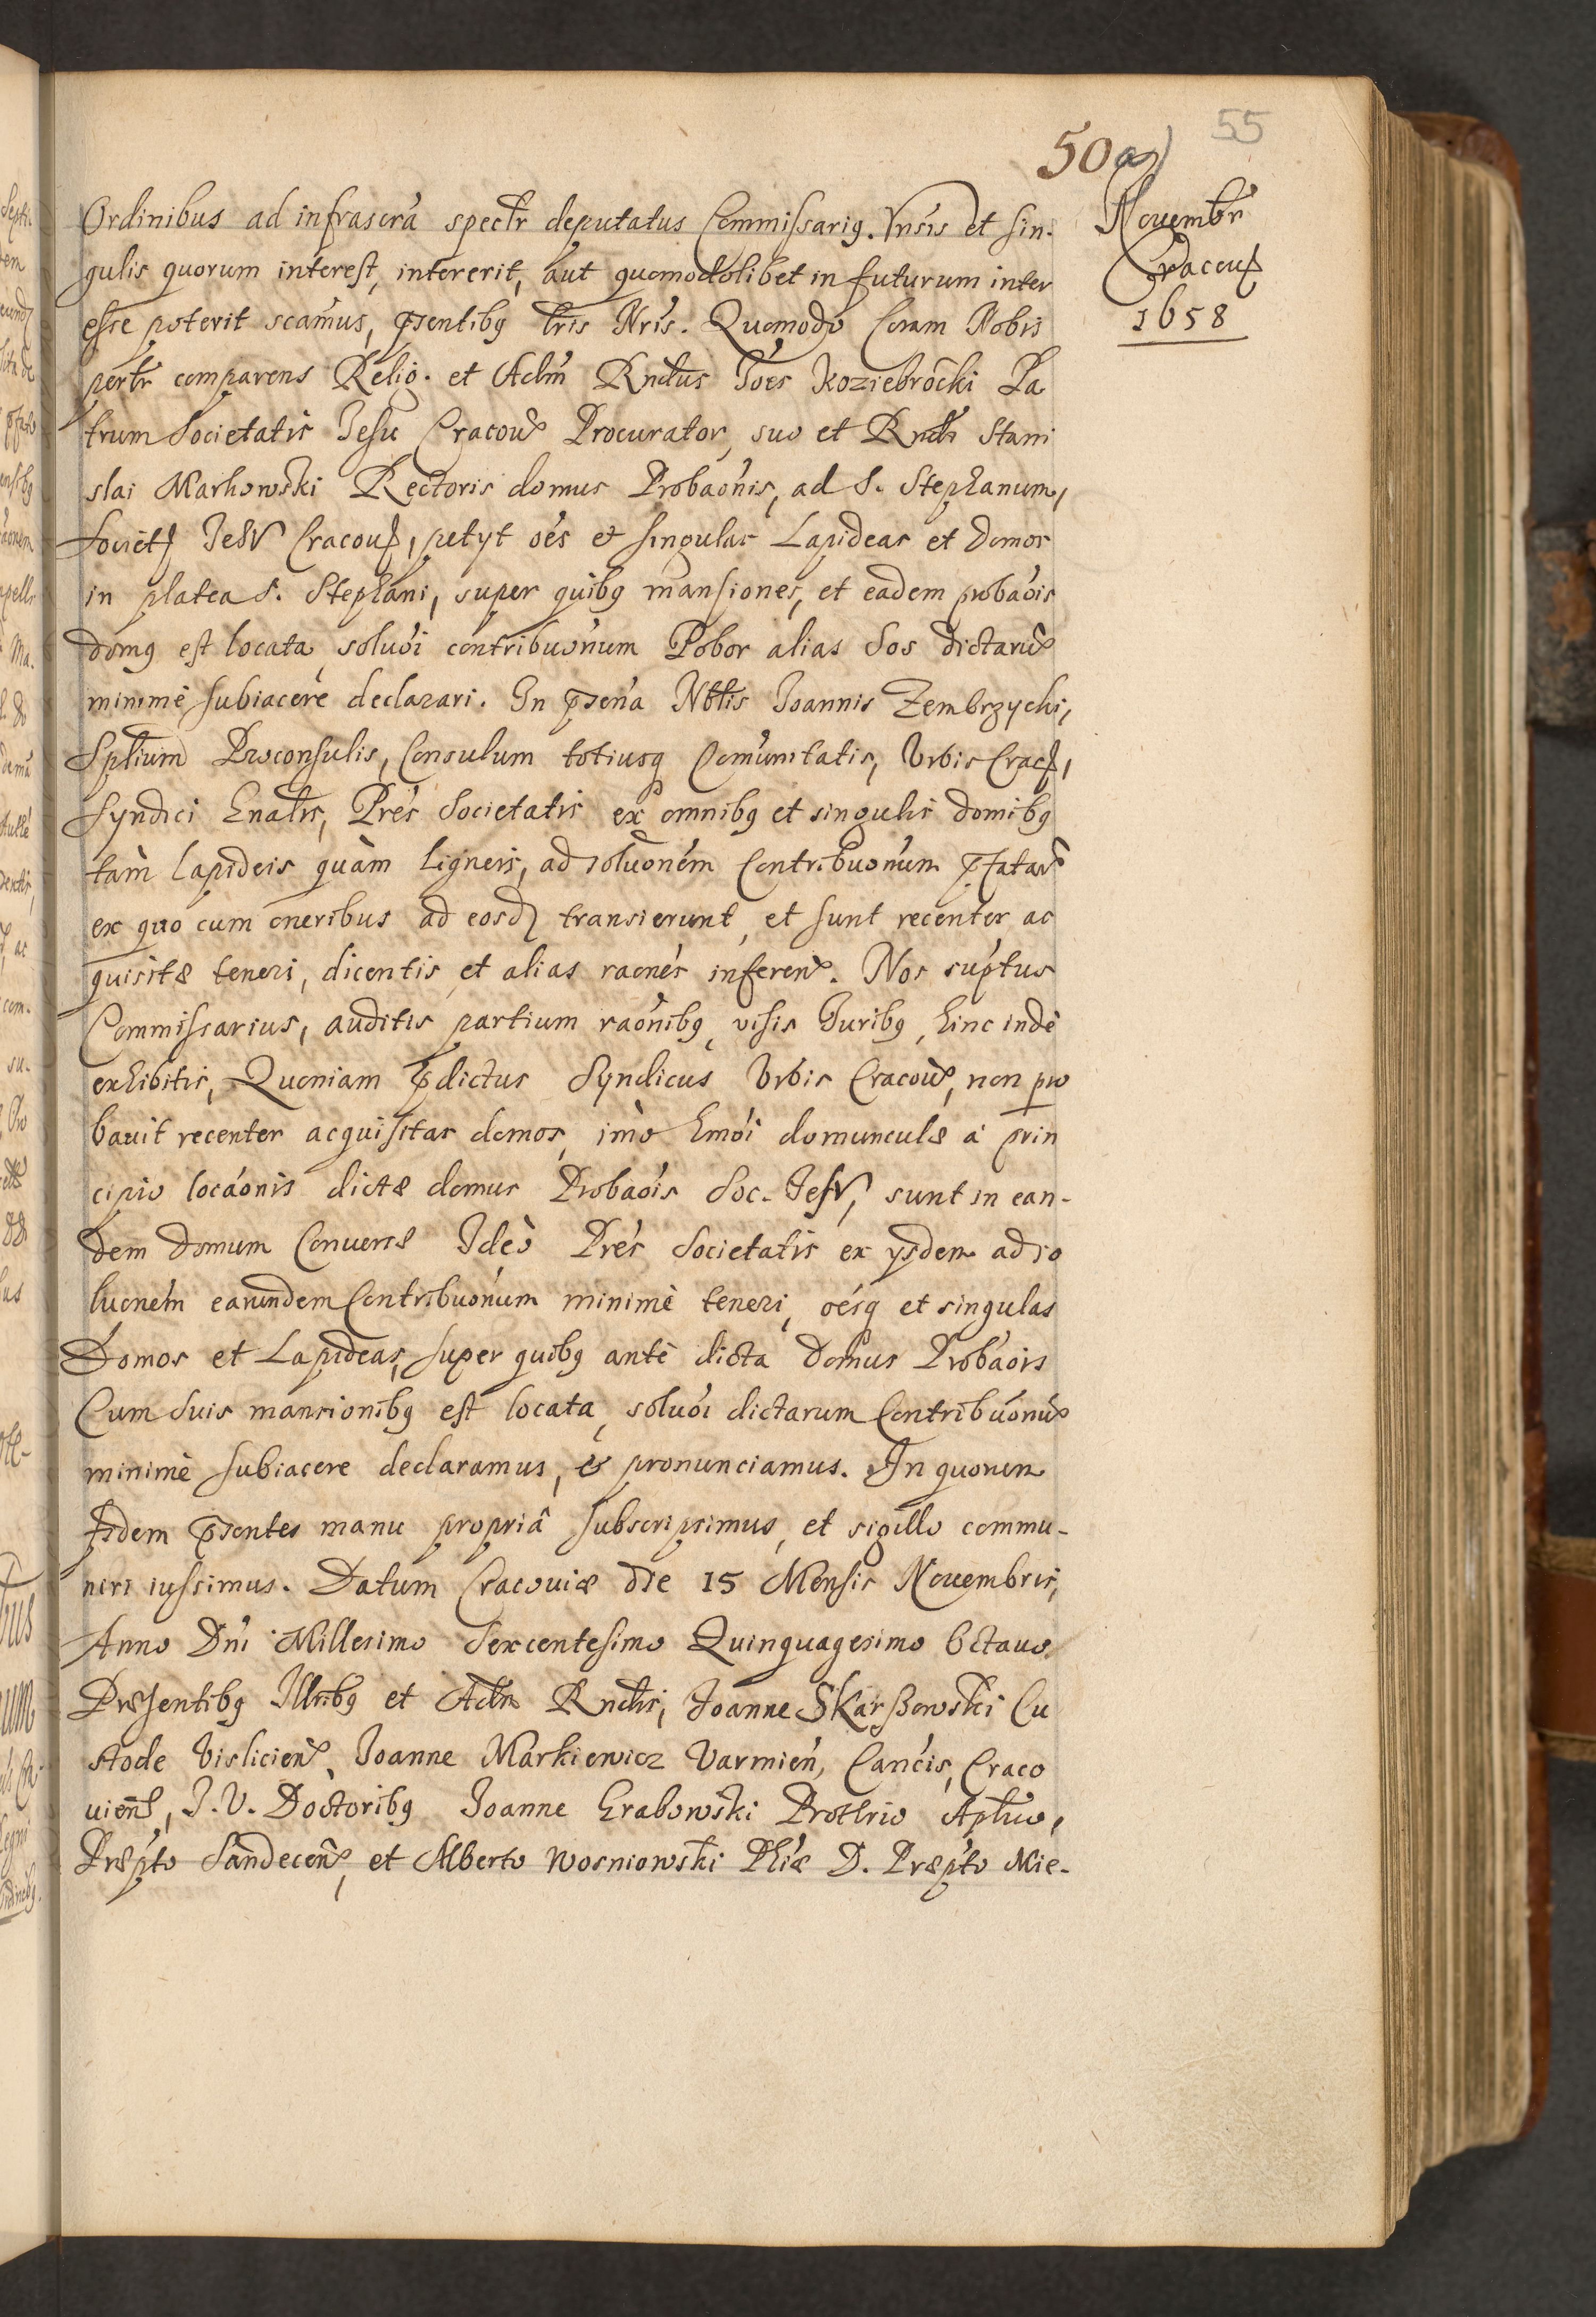 55
50 a)
Novembr
Cracoviẽ
1658
Ordinibus ad infrascrã spectr deputatus Commissarig. Vnsis et sin-
gulis quorum interest, intererit, aut quomodolibet in futurum inter
esse poterit scamus, p̃sentibg Lris Nris. Quomodo Coram Nobis
persr comparens Relig. et Adm Rndus Joes Koziebrocki Pa
trum Societatis Jesu Cracov Procurator, suo et Rndi Stani
slai Markowski Rectoris domus Probaonis, ad S. Stephanum,
Societ JesV Cracov, petyt oes et singulas Lapideas et domos
in platea S. Stephani, super quibg mansiones, et eadem probaois
domg est locata soluoi contribuonum Pobor alias Sos dictarũ
minimè subiacere declarari. In p̃sena Nblis Joannis Zembrzycki,
Spblium Proconsulis, Consulum totiusq Comunitatis, Vrbis Crac,
Syndici Enatis, Pres Societatis ex omnibg et singulis domibg
tàm lapideis quàm ligneis, ad soluonem Contribuonum p̃fatar
ex quo cum oneribus ad eosd transierunt, et sunt recenter ac
quisitæ teneri, dicentis et alias raones inferen. Nos suptus
Commissarius, auditis partium raonibg, visis Juribg, hinc indè
exhibitis, Quoniam p̃dictus Syndicus Vrbis Cracov, non pro
bauit recenter acquisitas domos, imò Emoi domunculæ à prin
cipio locaonis dictæ domus Probaois Soc. JesV, sunt in ean-
dem domum Conuersæ Ideò Pres Societatis ex ysdem ad so
luonem earundem Contribuonum minimè teneri, oesq et singulas
Domos et Lapideas, super quibg antè dicta domus Probaois
Cum suis mansionibg est locata, soluoi dictarum Contribuonũ
minimè subiacere declaramus, & pronunciamus. In quorum
fidem p̃sentes manu propriâ subscripsimus, et sigillo commu-
niri iussimus. Datum Cracoviæ die 15 Mensis Novembris,
Anno Dni Millesimo Sexcentesimo Quinquagesimo Octauo.
Præsentibg Illribg et Adm Rndis, Joanne Skarßowski Cu
stode Vislicien, Joanne Markiewicz Varmien, Cancis, Craco
uien, J.V. Doctoribg Joanne Grabowski Prothrio Aplico,
Præpto Sandecen, et Alberto Wosniowski Phiæ D. Præpto Mie-